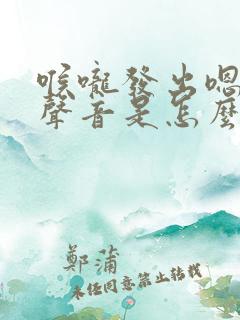 喉嚨發出嗯
聲音是怎麼
鄭蒲
未经同意禁止转载